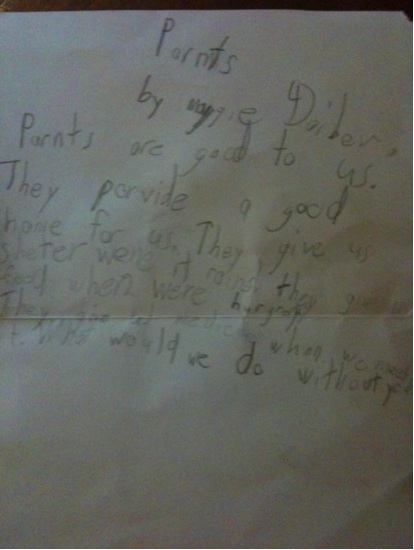 Parnts
by Daiber
Parnts are good to us.
They parvide a good
home for us. They give us
sheter wene it rains they give us
food when were hurgray
They give us medicine when we need
it. What would we do without you